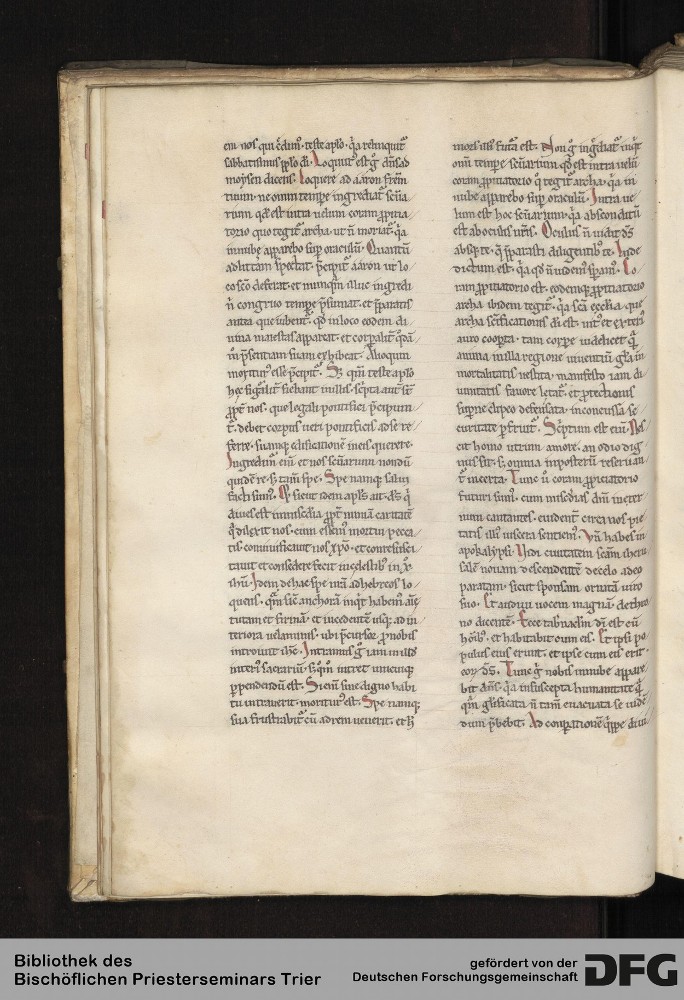 em nos qui credimꝰ teste aplo q̇a relinquitᷣ
sabbatismus pplo di. Loquutꝰ est g̊ dn̄s ad
moysen dicens. Loquere ad aaron frēm
tuum ne omni tempre ingrediatᷣ sc̄ua
rium qd̄ est intra uelum coram ppitia
torio quo tegitᷣ archa ut n̄ moriatᷣ q̇a
in nube apparebo sup oraculū. Quantū
ad littam spectat p̄cipitᷣ aaron ut lo
co sc̄o deferat et nunqm̄ illuc ingredi
n̄ congruo tempre p̄sumat et p̄paratis
antea que iubentᷣ qd̄ in loco eodem di
uina maiestas appareat et corpalit̄ qdā
m̄ p̄sentiam suam exhibeat. Alioquin
moriturꝰ esse p̄cipitᷣ. Sꝫ qm̄ teste aplo
hec figuralit̄ fiebant in illis sc̄pta aut̄ st̄
ppt̄ nos
t̄ debet corpus ueri pontificis ad se re
ferre suamq; edificationē in eis querere.
Ingredimᷣ eni et nos sc̄uarium nondū
quidē re sꝫ tam̄ spe. Spe namq; salui
facti sumꝰ. sicut idem apls ait ds̄ q̇
diues est in misc̄dia ppt̄ nimiā caritatē
q̇ dilexit nos cum essemꝰ mortui pecca
tis conuiuificauit nos xp̄o et conresusci
tauit et consedere fecit in celestibꝰ in x̄
ih̄u. Idem de hac spe nr̄a ad hebreos lo
quens qm̄ sic̄ anchorā inq̇t habemꝰ aīe
tutam et firmā et incedentē usq; ad in
teriora uelaminis ubi p̄cursor p nobis
introiuit ih̄c. Intramus g̊ iam in illd̄
interiꝰ sacrariū sꝫ qm̄ intret unusq;
ppendendū est. Si eni sine digno habi
tu intrauerit moriturꝰ est. Spe namq;
sua frustrabitᷣ cū ad rem uenerit et h̄
mors illiꝰ futa est. Non g̊ ingrediatᷣ inqt̄
omi tempre sc̄uarium qd̄ est intra uelū
coram ppitiatorio q̊ tegitᷣ archa q̇a in
nube apparebo sup oraculū. Intra ue
lum est hoc sc̄uarium q̇a absconditū
est ab oculis nr̄is. Oculus n̄ uidit ds̄
absq; te q̄ p̄parasti diligentibꝰ te. Inde
dictum est q̇a qd̄ n̄ uidemꝰ spamꝰ. Co
ram ppitiatorio est eodemq; ppitiatorio
archa ibidem tegitᷣ q̇a sc̄a ecc̄lia que
archa sc̄ificationis di est intꝰ et exteriꝰ
auro coopta tam corpe uidelicet q̄
anima in illa regione uiuentiū gl̄a in
mortalitatis uestita manifesto iam di
uinitatis fauore letatᷣ et ptectionis
supne clipeo defensata inconcussa se
curitate pfruitᷣ. Sc̄ptum est eni Nes
cit homo utrum amore an odio dig
nus sit sꝫ omnia in posterū reseruan
tᷣ incerta. Tunc u̇ coram ppiciatorio
futuri simꝰ cum misc̄dias dn̄i in eter
num cantantes euident̄ circa nos pie
tatis illiꝰ uiscera sentiemꝰ. Vn̄ habes in
apokalypsi. Uidi ciuitatem sc̄am iheru
salē nouam descendentē de celo a deo
paratam sicut sponsam ornatā uiro
suo. Et audiui uocem magnā de thro
no dicentē. Ecce tabnaclm̄ di est cū
hōibꝰ et habitabit cum eis. Et ipsi po
pulus eius erunt et ipse cum eis erit
eoꝝ ds̄. Tunc g̊ nobis in nube appare
bit dn̄s q̇a in suscepta humanitate q̄
qm̄ gl̄ificata n̄ tam̄ euacuata se uidē
dum p̄bebit. Ad conparationē q̇ppe diui
Bibliothek des
Bischöflichen Priesterseminars Trier
gefördert von der
Deutschen Forschungsgemeinschaft
DFG